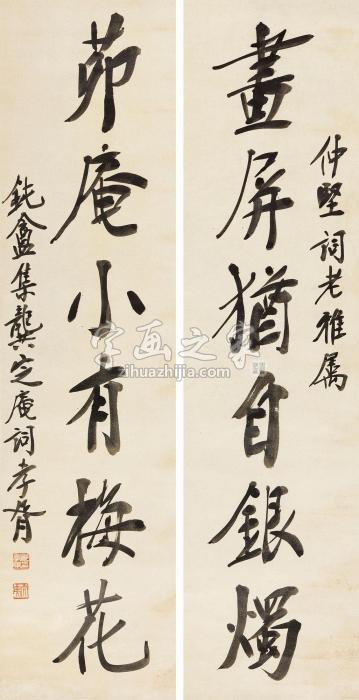 仲堅詞老雅屬
畫屏猶自銀燭
茆庵小有梅花
鈍盦集龔定庵詞孝胥
字画之家
zihuazhijia.com